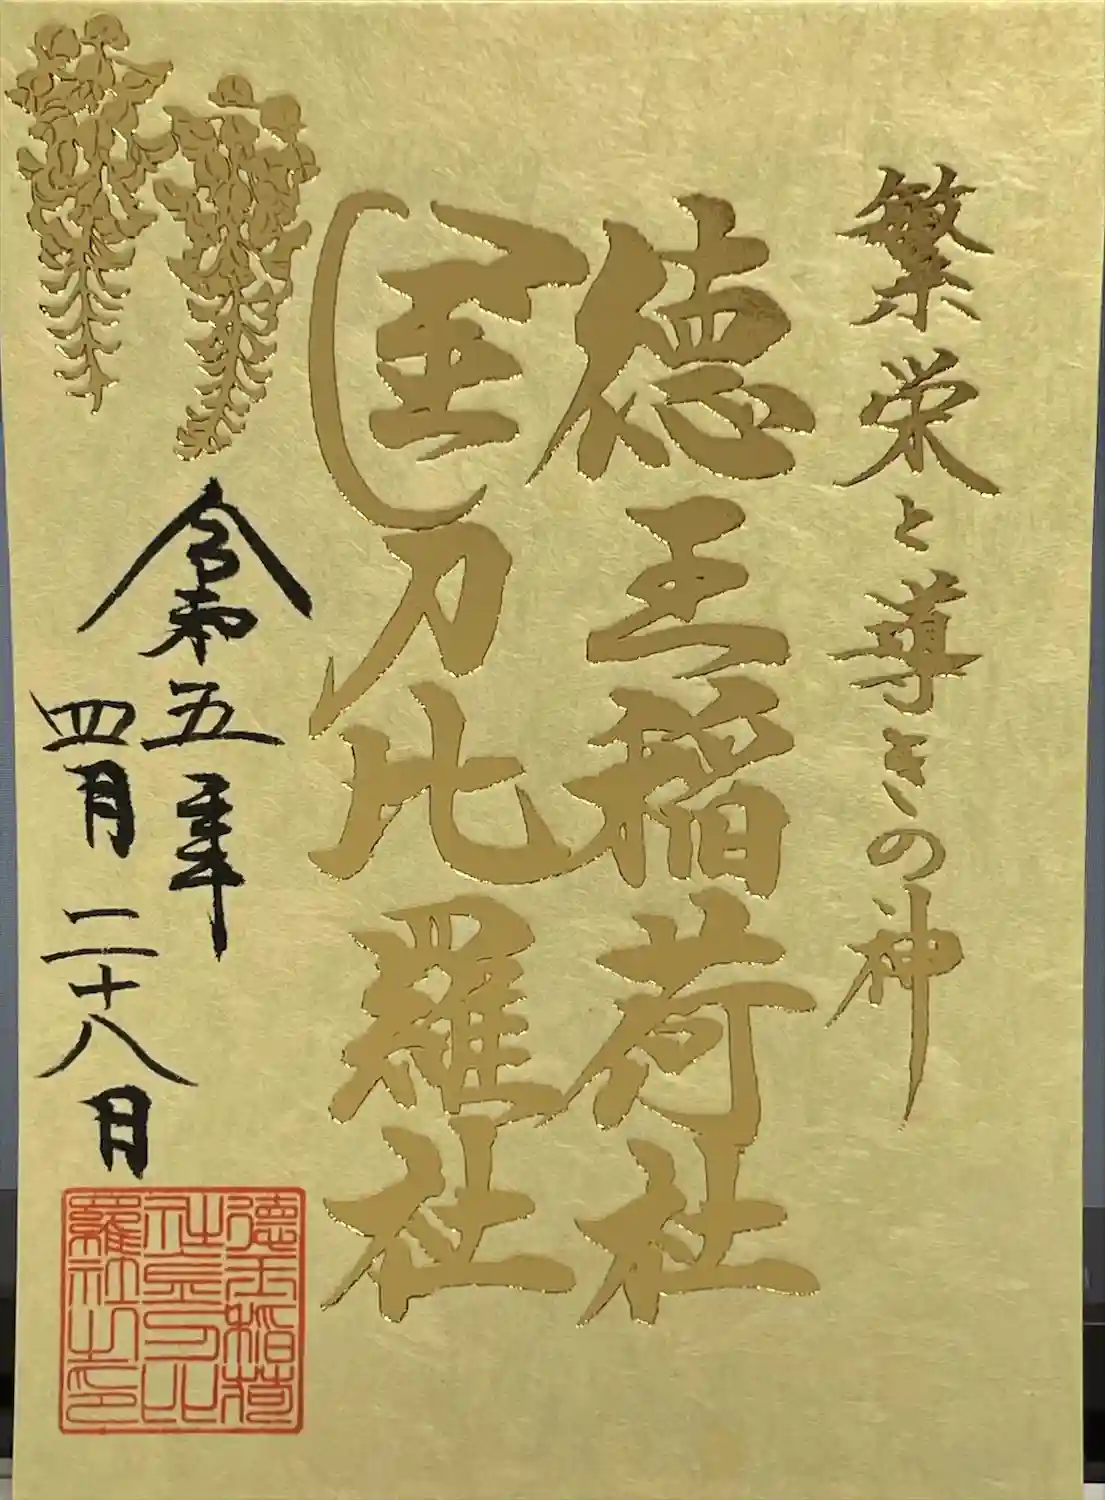 繁栄と導きの神
徳王稲荷社
金刀比羅社
令和五年
四月二十八日
徳王稲荷
社金刀比
羅社之印